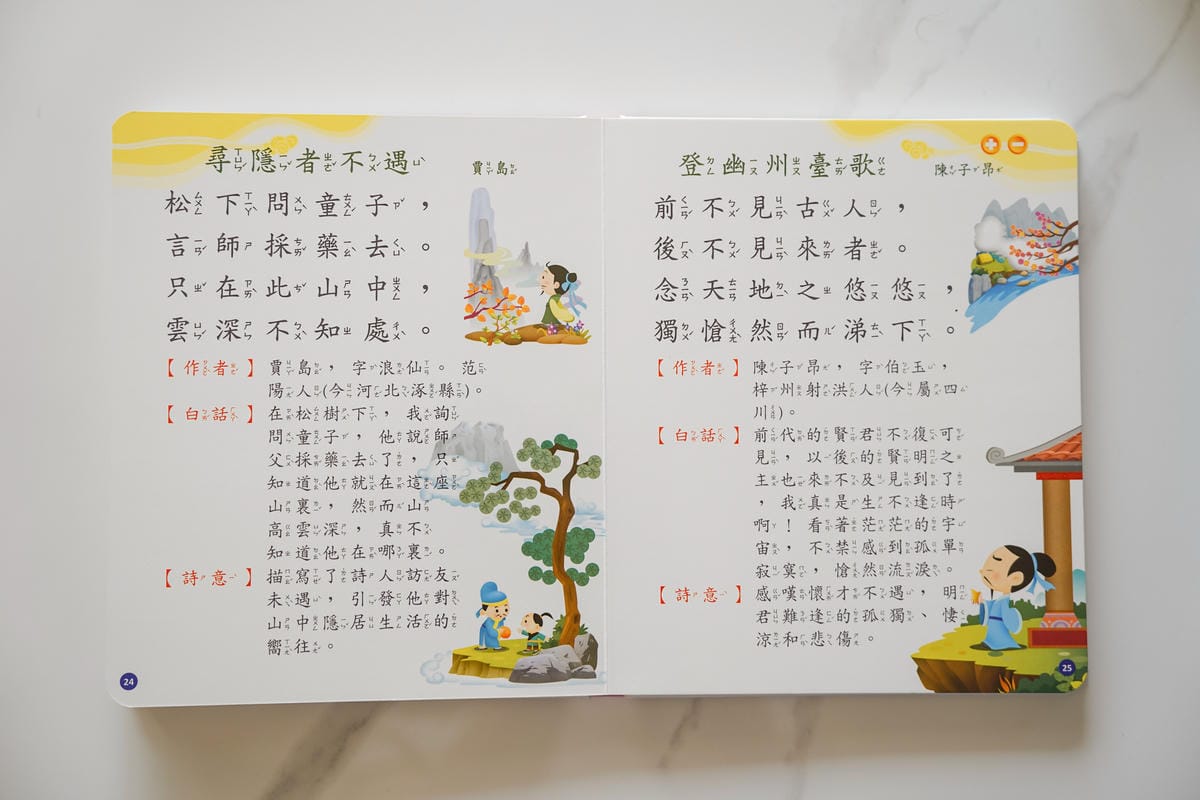 尋隱者不遇 賈島
松下問童子，
言師採藥去。
只在此山中，
雲深不知處。
【作者】賈島，字浪仙。范
陽人(今河北涿縣)。
【白話】在松樹下，我詢
問童子，他說師
父採藥去了，只
知道他就在這座
山裏，然而山
高雲深，真不
知道他在哪裏。
【詩意】描寫了詩人訪友
未遇，引發他對
山中隱居生活的
嚮往。
24
登幽州臺歌 陳子昂
前不見古人，
後不見來者。
念天地之悠悠，
獨愴然而涕下。
【作者】陳子昂，字伯玉，
梓州射洪人(今屬四
川)。
【白話】前代的賢君不復可
見，以後的賢明之
主也來不及見到了
，我真是生不逢時
啊！看著茫茫的宇
宙，不禁感到孤單
寂寞，愴然流淚。
【詩意】感嘆懷才不遇，明
君難逢的孤獨、悽
涼和悲傷。
25